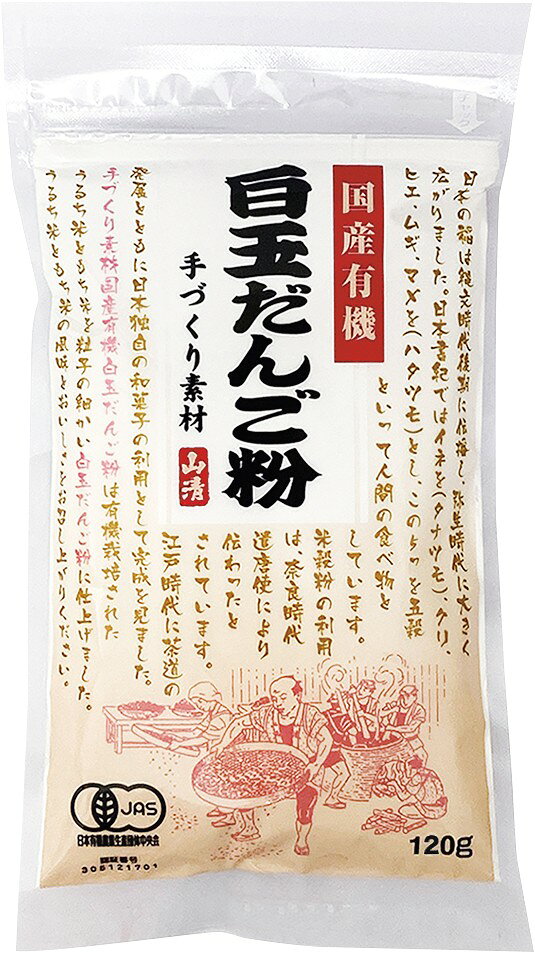 国産有機
白玉だんご粉
手づくり素材
山清
日本の稲は縄文時代後期に伝播し、弥生時代に大きく
広がりました。日本書紀ではイネを(タナツモ)、クリ、
ヒエ、ムギ、マメを(ハタツモ)とし、この5つを五穀
といって人間の食べ物と
しています。
米穀粉の利用
は、奈良時代
遣唐使により
伝わったと
されています。
江戸時代に茶道の
発展とともに日本独自の和菓子の利用として完成を見ました。
手づくり素材国産有機白玉だんご粉は有機栽培された
うるち米ともち米を粒子の細かい白玉だんご粉に仕上げました。
うるち米ともち米の風味とおいしさをお召し上がりください。
JAS
日本有機農業生産団体中央会
認証番号
305121701
120g